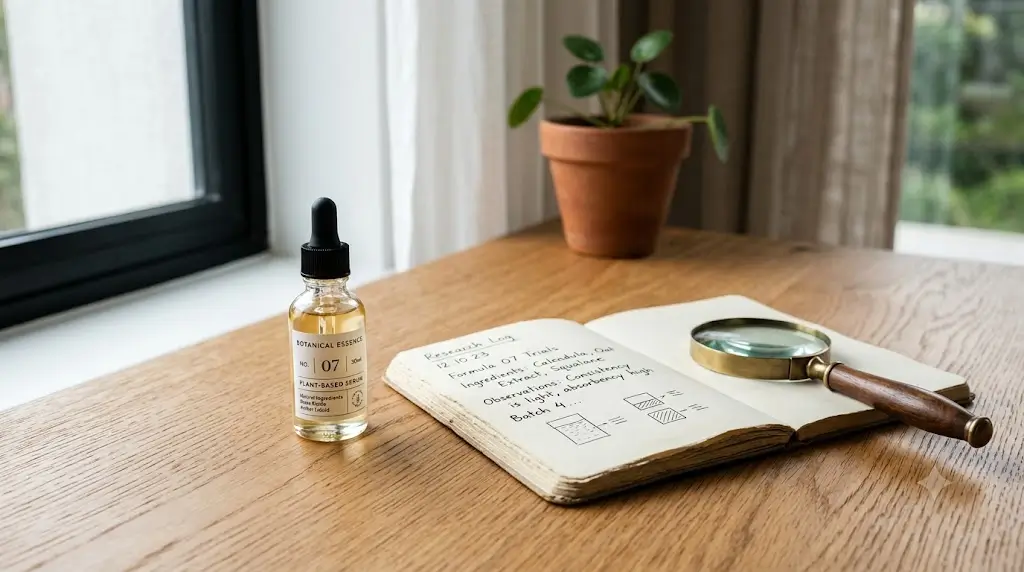 BOTANICAL ESSENCE
NO. 07 30ml
PLANT-BASED SERUM
Natural Ingredients
Research Log
12.10.23
Formula 07 Trials
Ingredients: Calendula, Oat
Extract, Squalane
Observations: Consistency
is light, absorbency high
Batch 4...